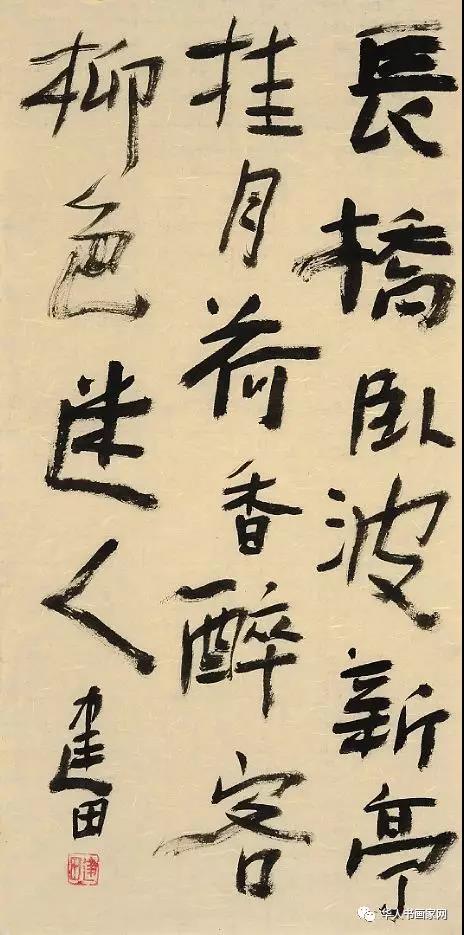 長橋卧波新亭
挂月荷香醉客
柳色迷人
建田
华人书画家网